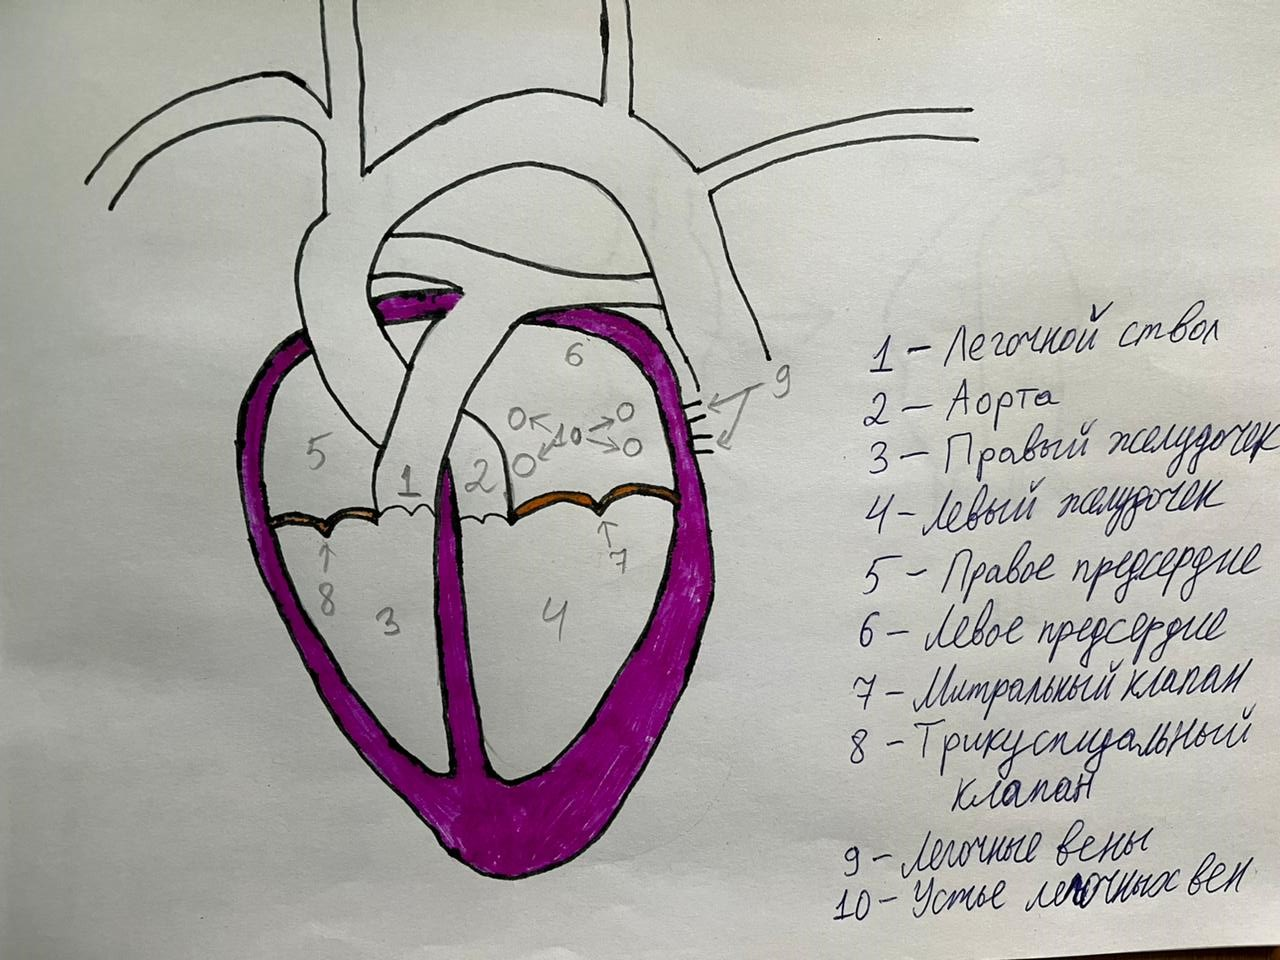 6
9
10
5
1
2
7
8
3
4
1 – Легочной ствол
2 – Аорта
3 – Правый желудочек
4 – Левый желудочек
5 – Правое предсердие
6 – Левое предсердие
7 – Митральный клапан
8 – Трикуспидальный
клапан
9 – Легочные вены
10 – Устье легочных вен